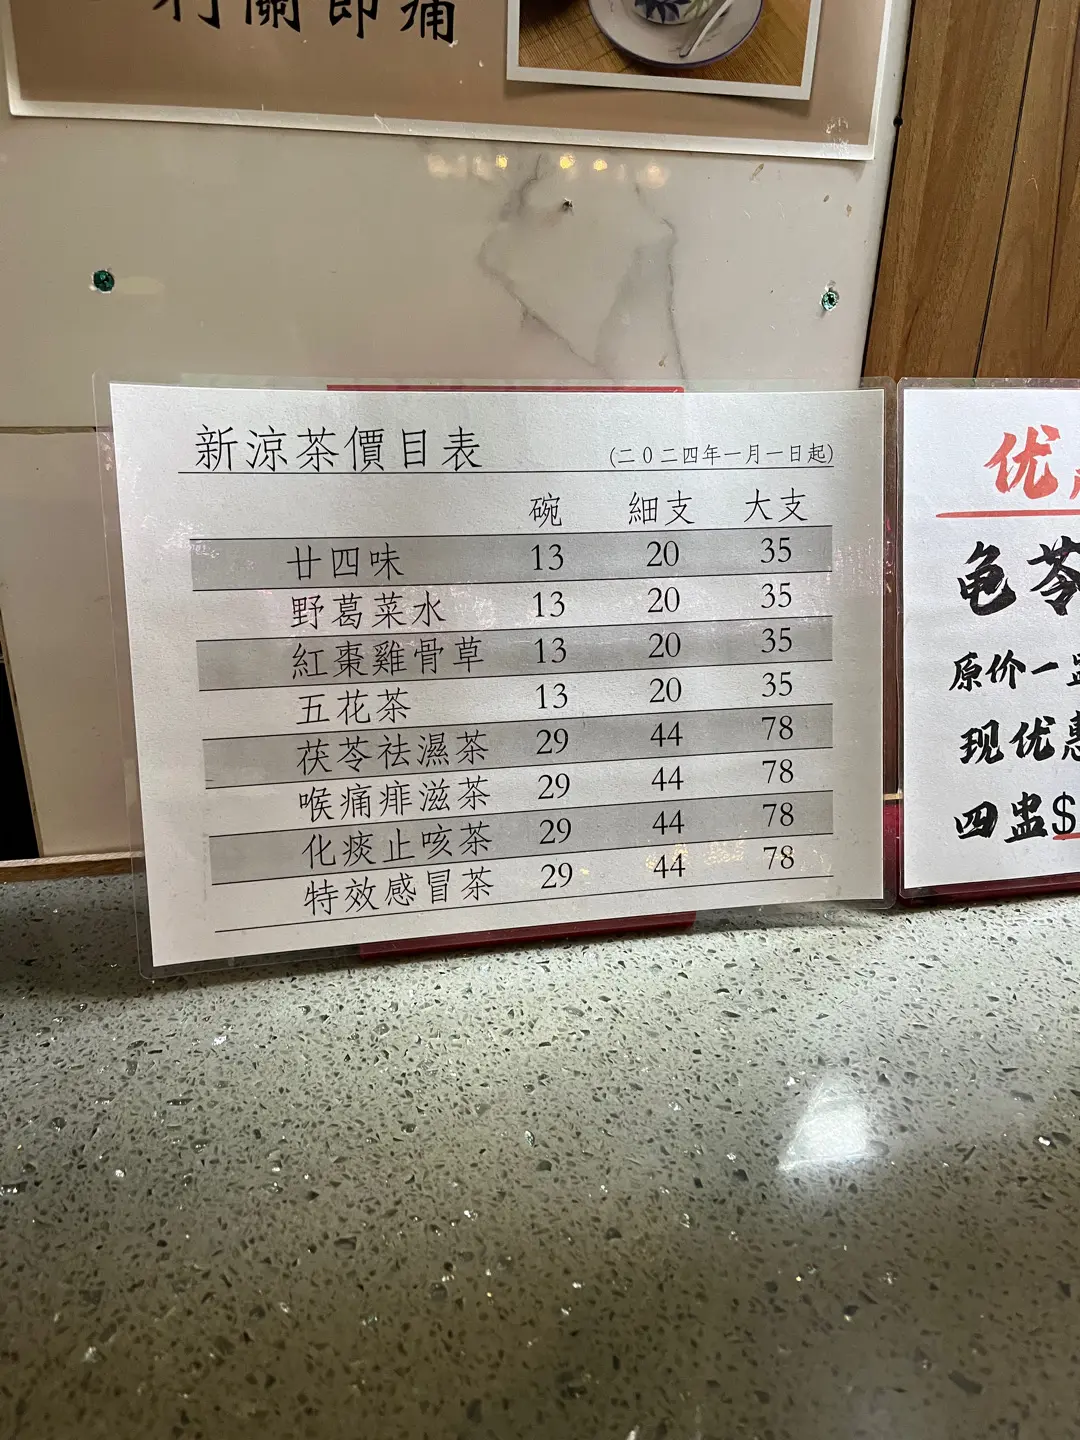 關節痛
新涼茶價目表 (二０二四年一月一日起)
碗 細支 大支
廿四味 13 20 35
野葛菜水 13 20 35
紅棗雞骨草 13 20 35
五花茶 13 20 35
茯苓祛濕茶 29 44 78
喉痛痱滋茶 29 44 78
化痰止咳茶 29 44 78
特效感冒茶 29 44 78
优
龟苓
原价一
现优惠
四盅$